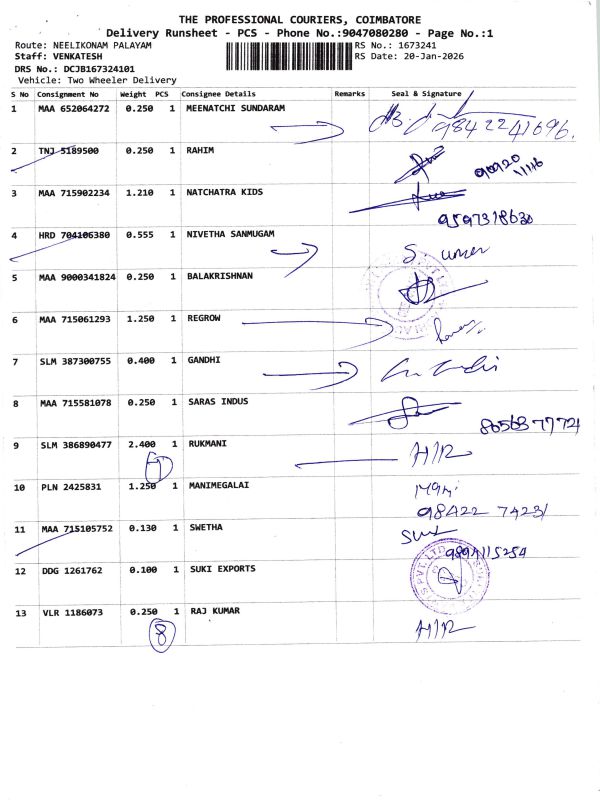 THE PROFESSIONAL COURIERS, COIMBATORE
Delivery Runsheet - PCS - Phone No.:9047080280 - Page No.:1
Route: NEELIKONAM PALAYAM RS No.: 1673241
Staff: VENKATESH RS Date: 20-Jan-2026
DRS No.: DCJB167324101
Vehicle: Two Wheeler Delivery
S No Consignment No Weight PCS Consignee Details Remarks Seal & Signature
1 MAA 652064272 0.250 1 MEENATCHI SUNDARAM
9842241696.
2 TNJ 5189500 0.250 1 RAHIM
90920
11116
3 MAA 715902234 1.210 1 NATCHATRA KIDS
9597318630
4 HRD 704106380 0.555 1 NIVETHA SANMUGAM
5 MAA 9000341824 0.250 1 BALAKRISHNAN
6 MAA 715061293 1.250 1 REGROW
7 SLM 387300755 0.400 1 GANDHI
8 MAA 715581078 0.250 1 SARAS INDUS
9 SLM 386890477 2.400 1 RUKMANI H/R
10 PLN 2425831 1.250 1 MANIMEGALAI Mani
98422 74231
11 MAA 715105752 0.130 1 SWETHA
9894115254
12 DDG 1261762 0.100 1 SUKI EXPORTS
13 VLR 1186073 0.250 1 RAJ KUMAR H/R
8